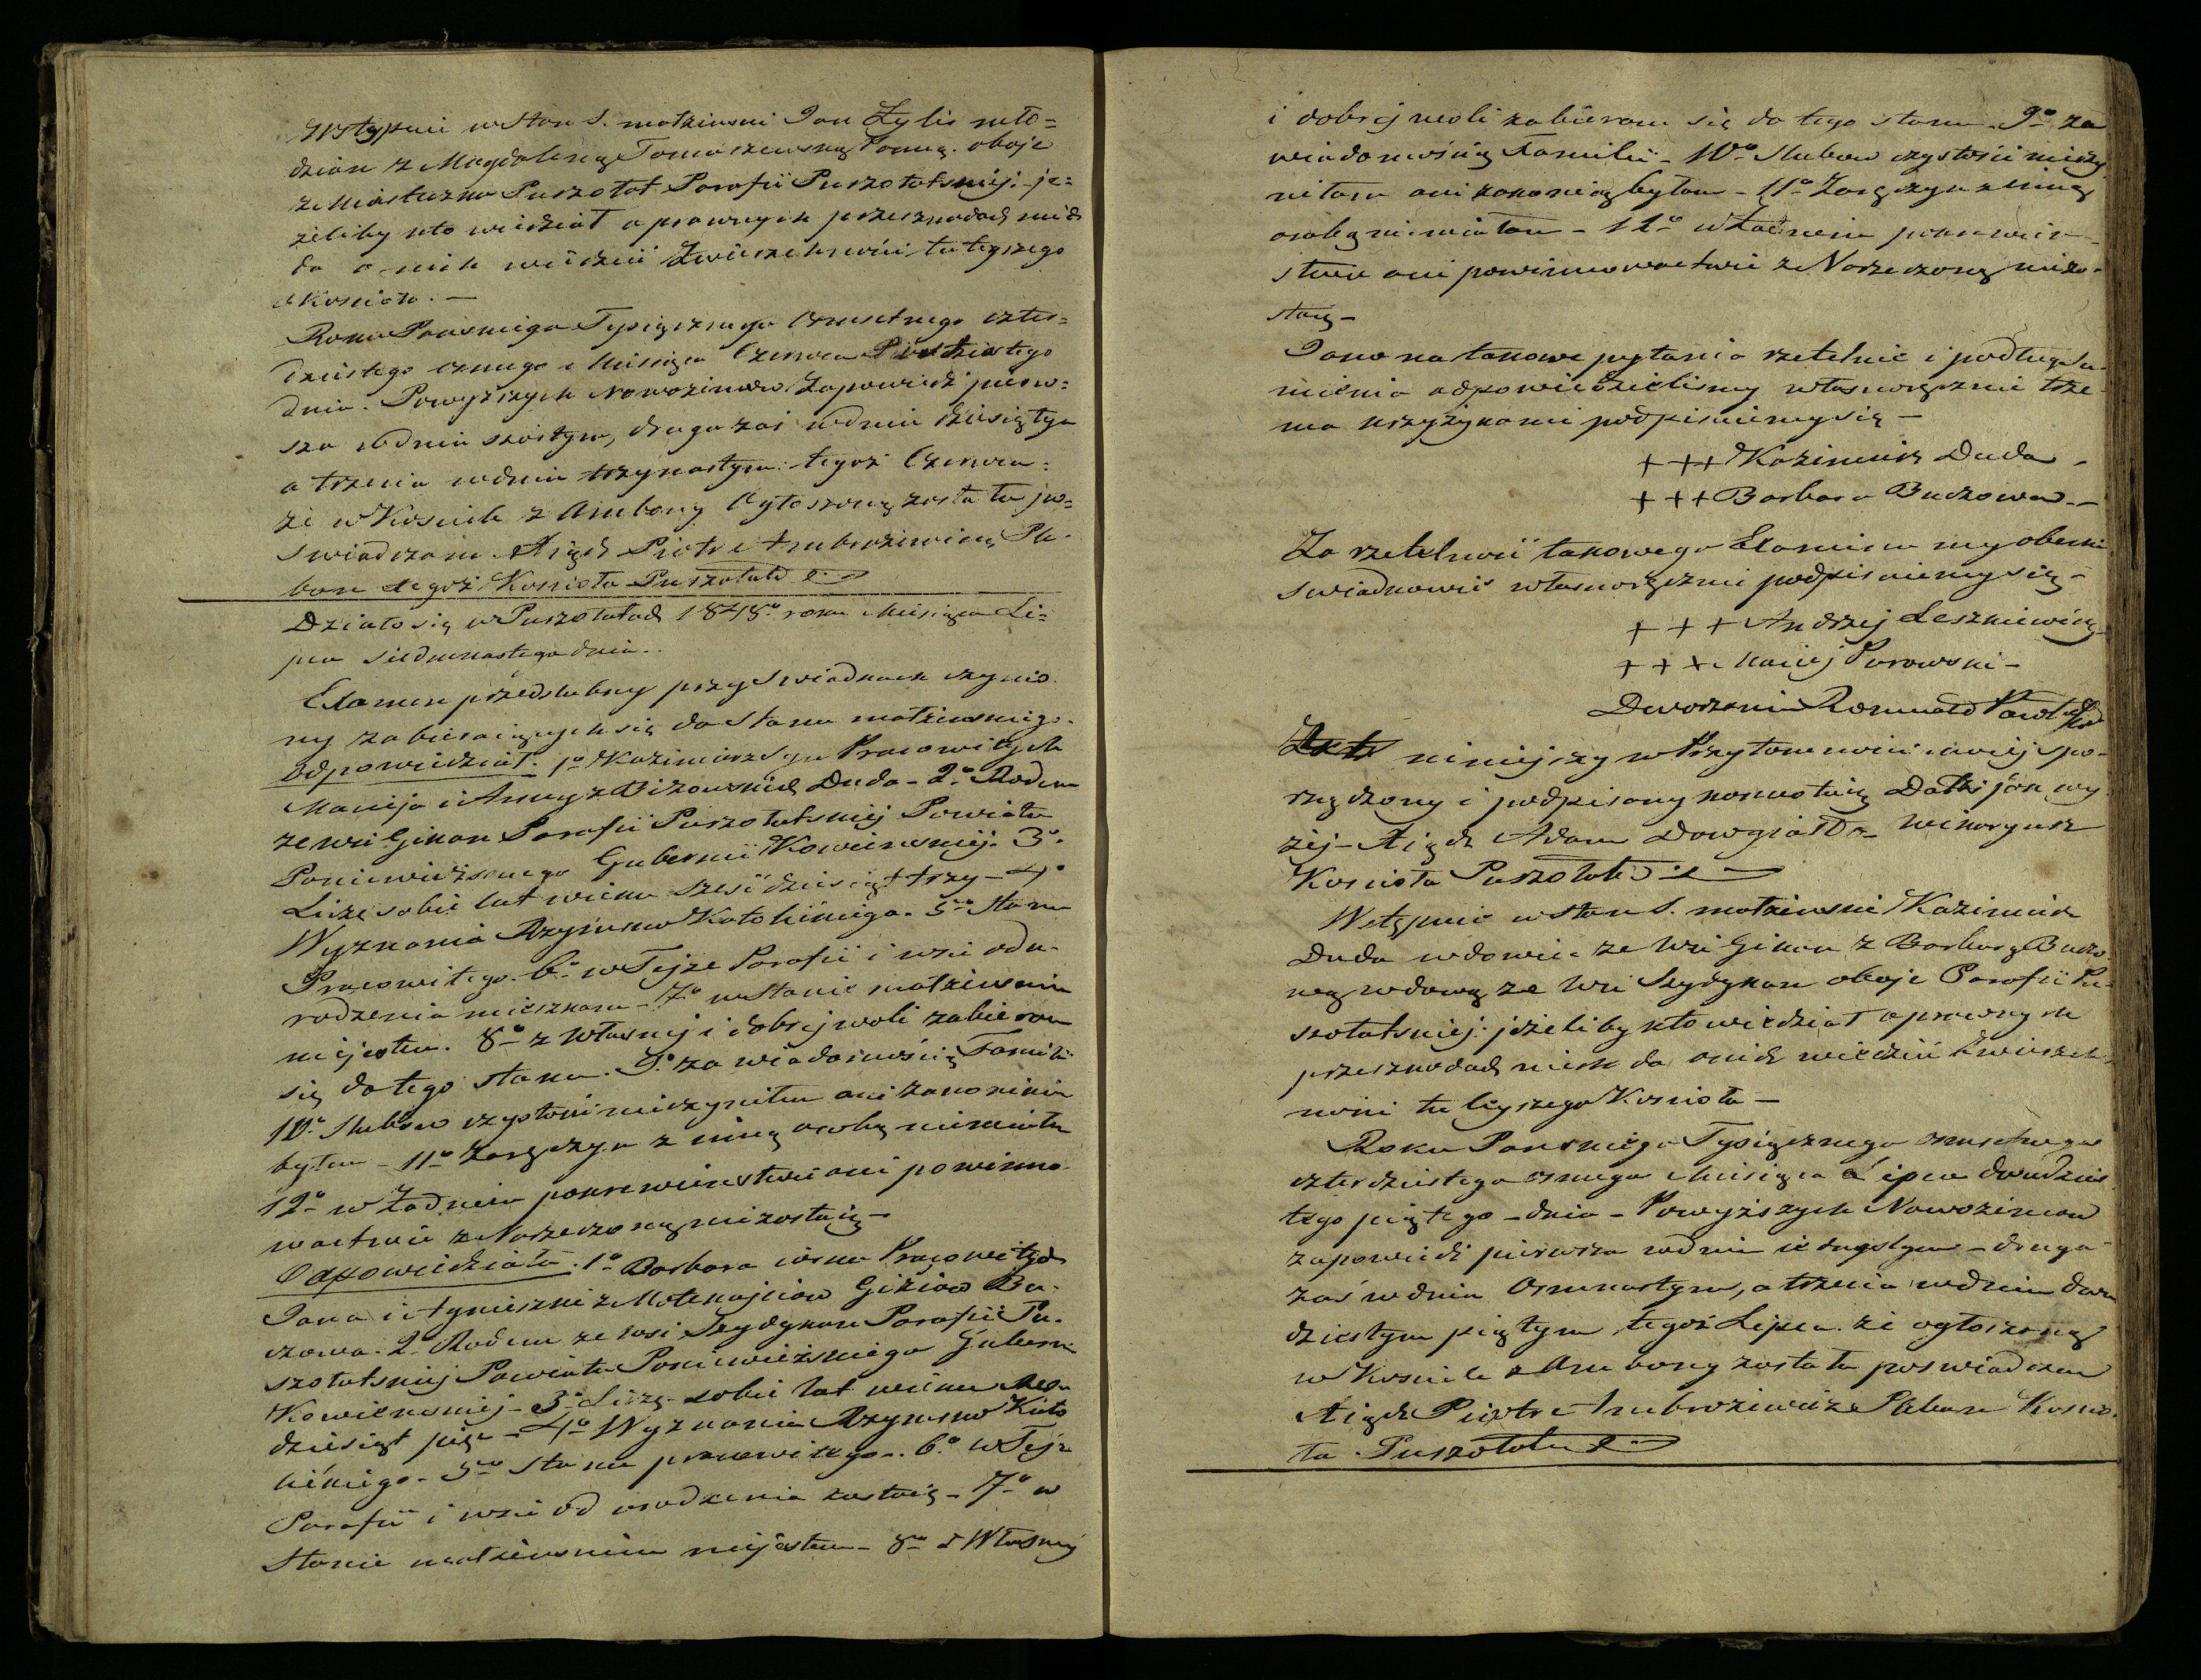 Wstępuie w stan S. małżenski Jan Żylis mło=
dzian z Magdaleną Tomaszewską Panną. oboje
z Miasteczka Puszołat Parafii Puszołatskiej: je=
żeliby kto wiedział o prawnych przeszkodach niech
da o nich wiedzieć Zwierzchności tutejszego
Kościoła. —
Roku Pańskiego Tysiącznego Osmsetnego czter=
dziestego osmego Miesiąca Czerwca
dnia. Powyższych Nowożeńcow Zapowiedź pierw=
sza w dniu szóstym, druga zaś w dniu dziesiątym
a trzecia w dniu trzynastym tegoż Czerwca:
że w Kościele z Ambony Ogłoszoną została to po=
swiadczam Xiądz Piotr Ambroziewicz Ple=
ban tegoż Kościoła Puszołat
Działo się w Puszołatach 1848o roku Miesiąca Li=
pca siedmnastego dnia..
Examen przedslubny przy Swiadkach czynio
ny zabieraiących się do stanu małżenskiego.
Odpowiedział. 1o Kazimierz Syn Pracowitych
Macieja i Anny z Duda - 2o Rodem
ze wsi Ginkan Parafii Puszołatskiej Powiatu
Poniewieżskiego Gubernii Kowienskiej. 3o
Liczę sobie lat wieku sześćdziesiąt trzy - 4o
Wyznania Rzymsko Katolickiego. 5to Stanu
Pracowitego. 6o w Tejże Parafii i wsi od u=
rodzenia mieszkam - 7o w Stanie małżenskim
niejestem. 8o z własnej i dobrej woli zabieram
się do tego stanu. 9o za wiadomością Familii
10o Slubow czystości nieczyniłem ani zakonikiem
byłem - 11o Zaręczyn z inną osobą niemiałem
12o w Żadnem pokrewieństwie ani powinno=
wactwie z Narzeczoną niezostaię -
Odpowiedziała. 1o Barbara corka Pracowitych
Jana i Agnieszki z Giziow Bu=
czowa. 2o Rodem ze wsi Szydykan Parafii Pu=
szołatskiej Powiatu Poniewieżskiego Guberni
Kowienskiej - 3o Liczę sobie lat wieku
dziesiąt pięć - 4o Wyznania Rzymsko Kato
lickiego. 5to Stanu pracowitego. 6o w Tejże
Parafii i wsi od urodzenia zostaię - 7o w
Stanie małżenskim niejestem - 8o z Własnej
i dobrej woli zabieram się do tego stanu - 9o za
wiadomością Familii - 10o Slubow czystości nieczy
niłam ani zakonicą byłam - 11o Zaręczyn z inną
osobą niemiałam - 12o w Żadnem pokrewień
stwie ani powinnowactwie z Narzeczonym niezo=
staię -
Jako na takowe pytania rzetelnie i podług su=
mienia odpowiedzielismy własnoręcznie trze
ma krzyżykami podpisuiemy się —
+ + + Kazimierz Duda -
+ + + Barbara Buczowa. -
Za rzetelność takowego Examinu my obecni
swiadkowie własnoręcznie podpisuiemy się -
+ + + Andrzej Leszniewicz
+ + + Maciej Purowski -
Dworzanin Romuald
niniejszy w Przytomności mojej spo=
rządzony i podpisany Datt jak wy
żej - Xiądz Adam Dowgiałło Wikaryusz
Kościoła Puszołat
Wstępuie w stan S. małżenski Kazimierz
Duda wdowiec ze wsi Ginkan z Barbarą Buczo
wą wdową ze wsi Szydykan oboje Parafii Pu=
szołatskiej: jeżeliby kto wiedział o prawnych
przeszkodach niech da o nich wiedzieć Zwierzch
ności tutejszego Kościoła —
Roku Pańskiego Tysiącznego osmsetnego
czterdziestego osmego Miesiąca Lipca dwudzies
tego piątego - dnia - Powyższych Nowożeńcow
zapowiedź pierwsza w dniu iedenastym - druga
zaś w dniu Osmnastym, a trzecia w dniu dwu
dziestym piątym tegoż Lipca. że ogłoszoną
w Kościele z Ambony została poswiadczam
Xiądz Piotr Ambroziewicz Pleban Koscio=
ła Puszołat